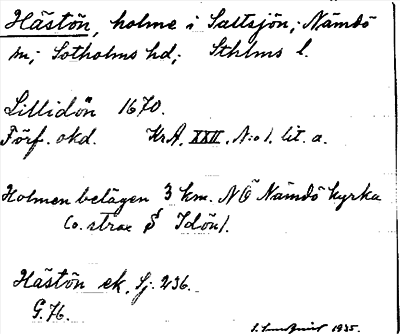 Hästön, holme i Saltsjön; Nämdö
sn; Sotholms hd; Sthlms l.
Lillidön 1670.
Förf. okd. KrA. XXII. N:o 1. lit. a.
Holmen belägen 3 km. NÖ Nämdö kyrka
(o. strax S Idön).
Hästön ek. Sj. 236.
G. 76.
1935.